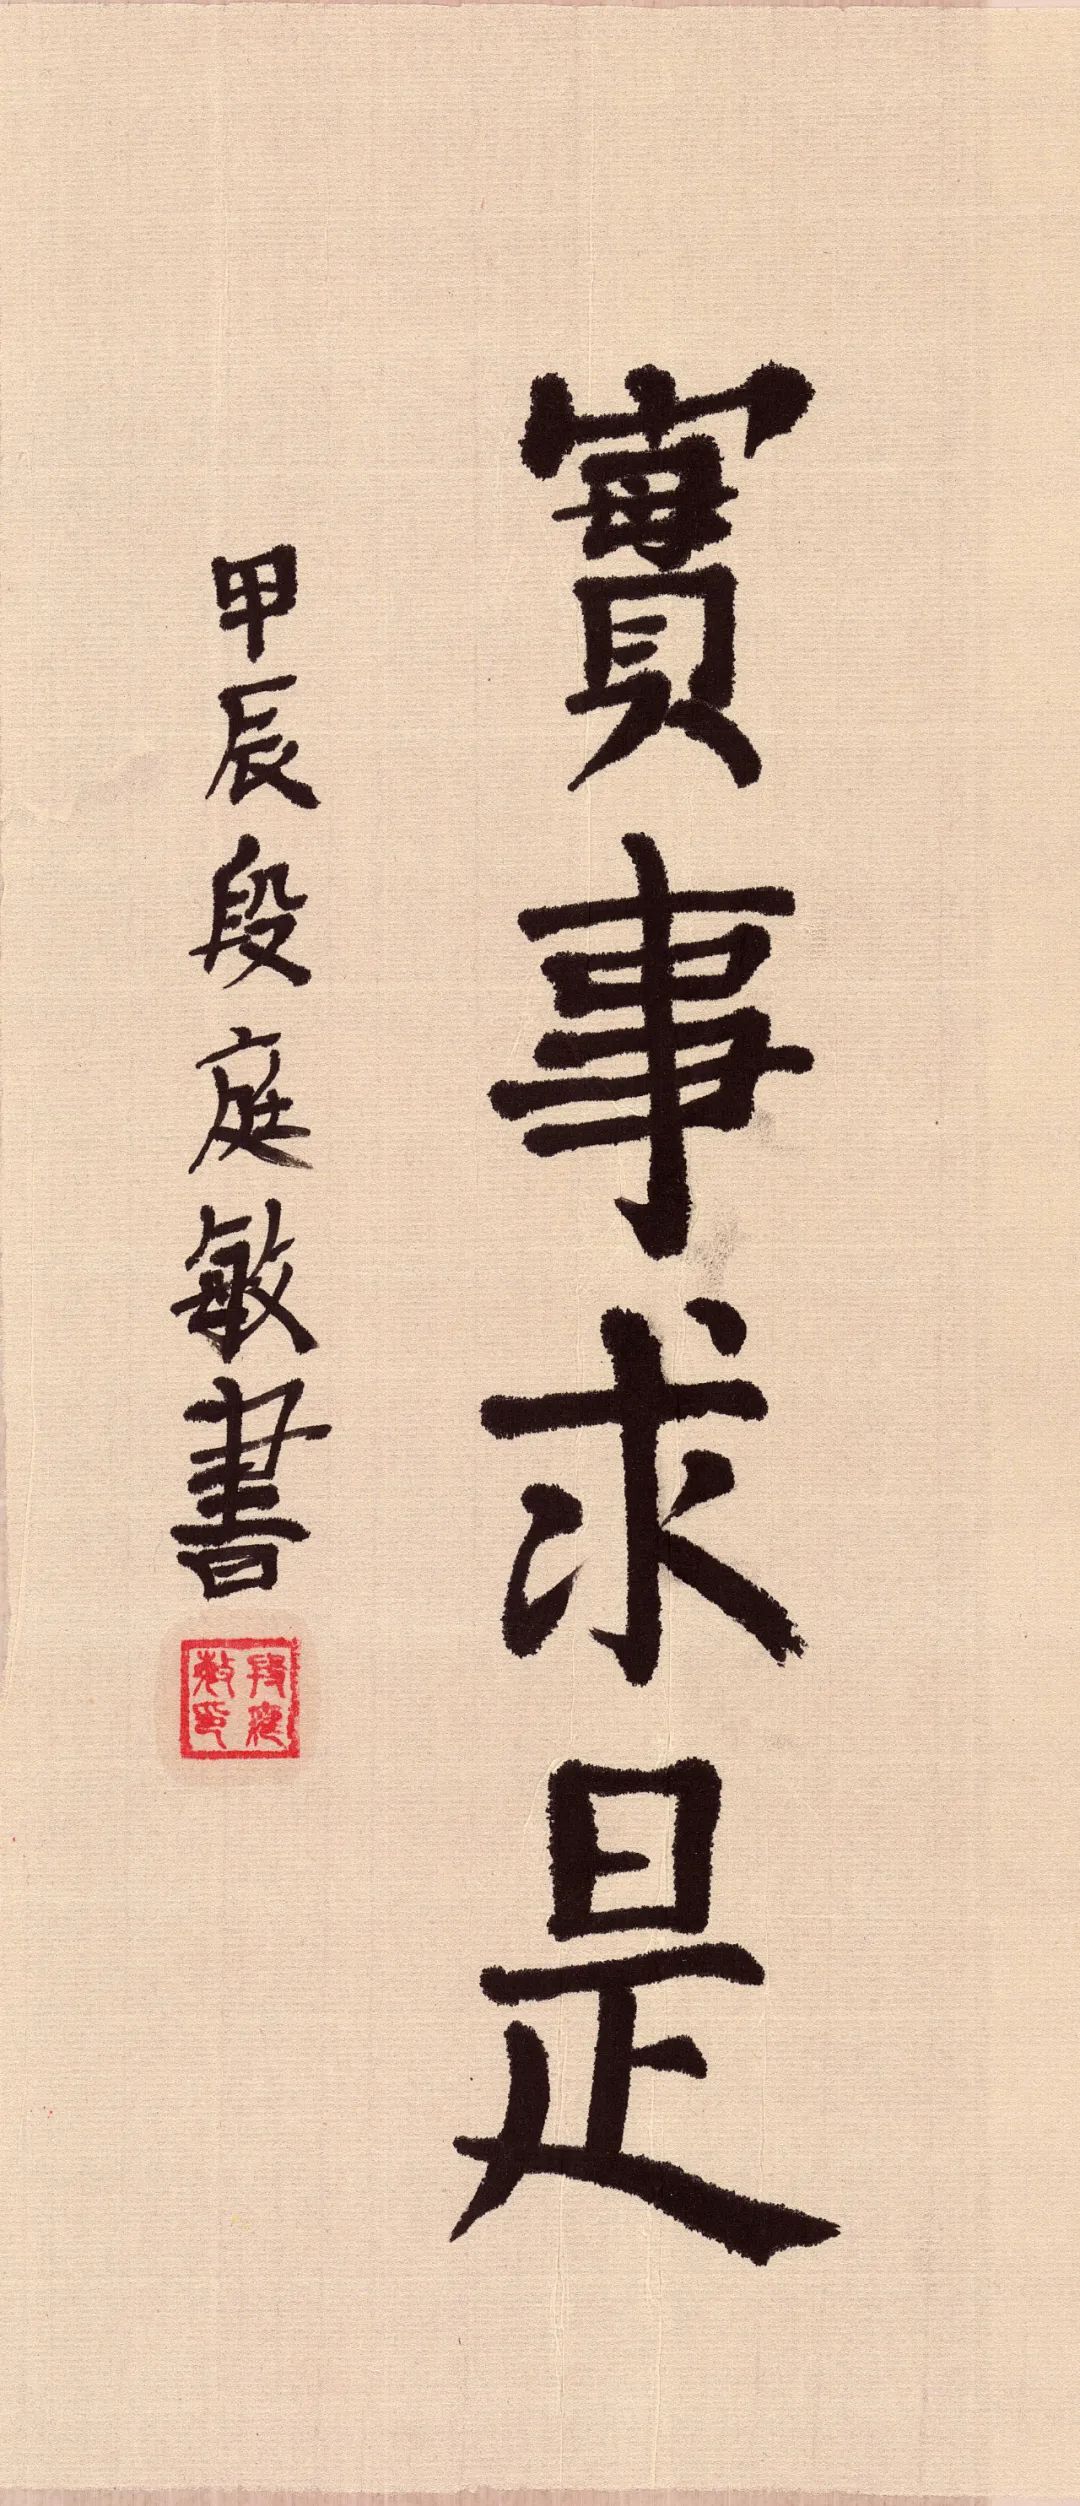 實事求是
甲辰段庭敏書
段庭敏印